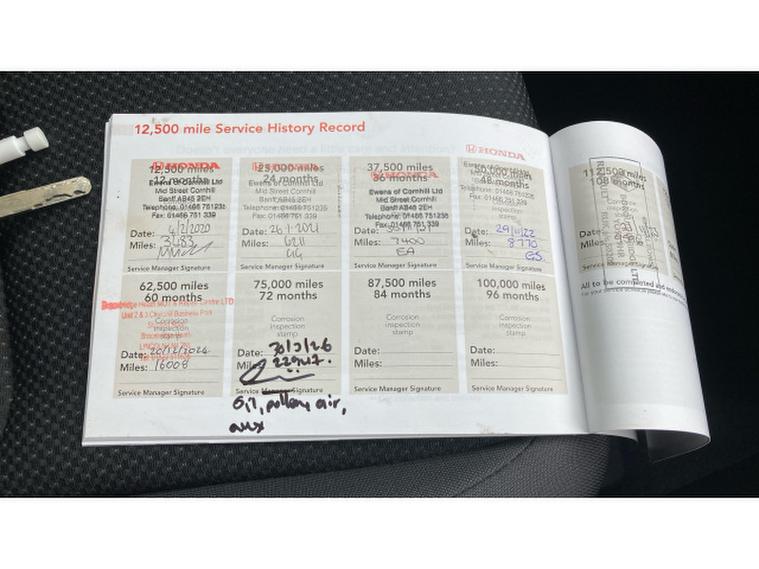 12,500 mile Service History Record
HONDA
12,500 miles
12 months
Ewens of Cornhill Ltd
Mid Street Cornhill
Banff AB45 2EH
Telephone: 01466 751235
Fax: 01466 751 339
Date: 4/2/2020
Miles: 3483
Service Manager Signature
25,000 miles
24 months
Ewens of Cornhill Ltd
Mid Street Cornhill
Banff AB45 2EH
Telephone: 01466 751235
Fax: 01466 751 339
Date: 26/1/2021
Miles: 6211
Service Manager Signature
37,500 miles
36 months
Ewens of Cornhill Ltd
Mid Street Cornhill
Banff AB45 2EH
Telephone: 01466 751235
Fax: 01466 751 339
Date:
Miles: 7400
EA
Service Manager Signature
HONDA
50,000 miles
48 months
Date: 29/11/22
Miles: 8770
Service Manager Signature
112,500 miles
108 months
Date:
Miles:
Service Manager Signature
All to be completed and endorsed
62,500 miles
60 months
Unit 2 & 3 Business Park
Corrosion
inspection
stamp
Date: 20/12/2024
Miles: 16008
Service Manager Signature
75,000 miles
72 months
Corrosion
inspection
stamp
Date:
Miles:
Service Manager Signature
Oil, pollen, air,
aux
87,500 miles
84 months
Corrosion
inspection
stamp
Date:
Miles:
Service Manager Signature
100,000 miles
96 months
Corrosion
inspection
stamp
Date:
Miles:
Service Manager Signature